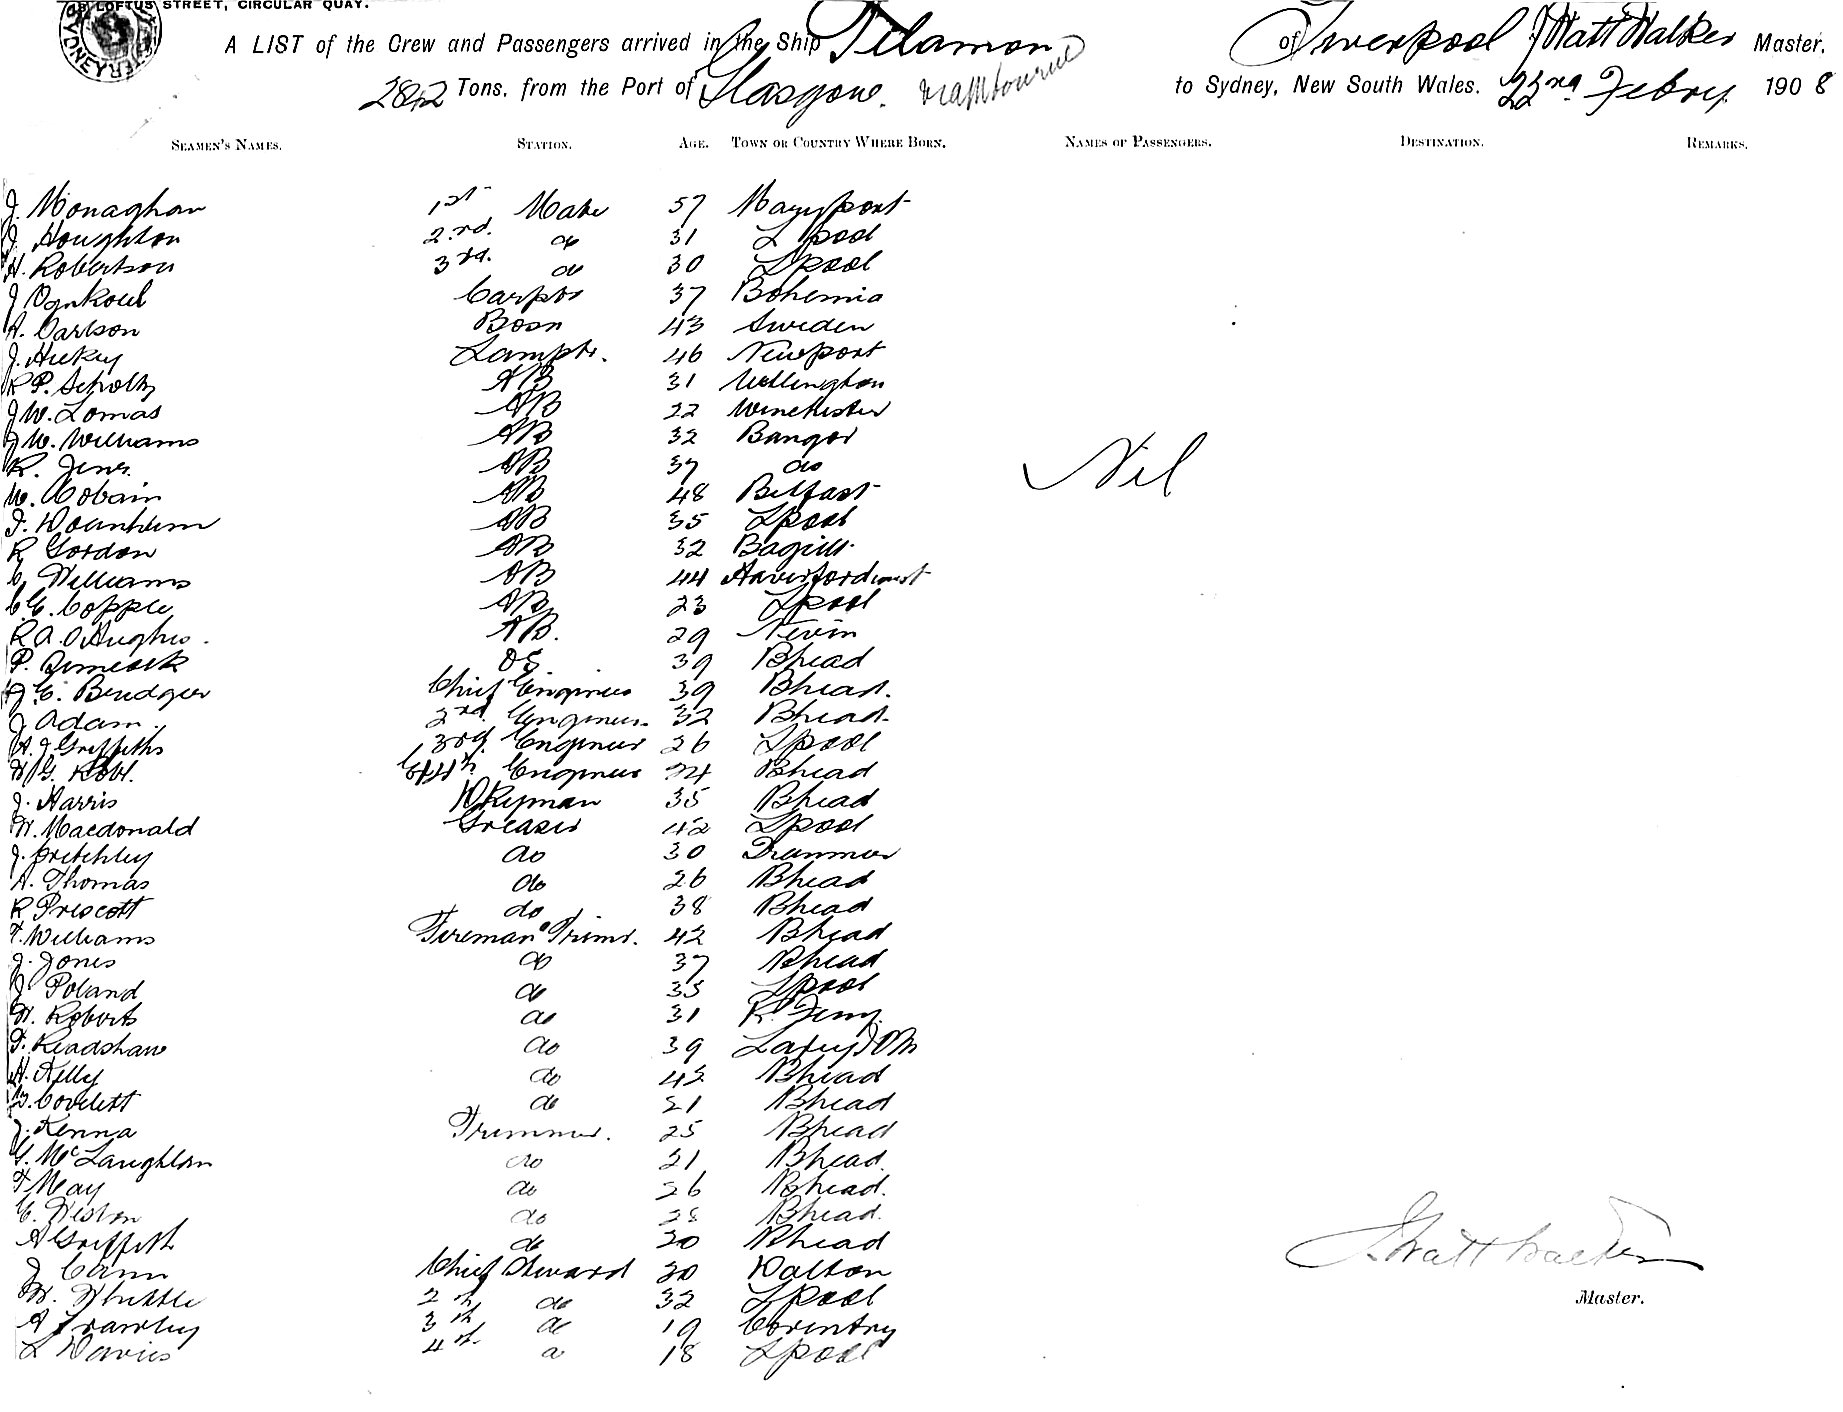 LOFTUS STREET, CIRCULAR QUAY.
A LIST of the Crew and Passengers arrived in the Ship Telamon of Liverpool J Watt Walker Master,
2842 Tons, from the Port of Glasgow. Melbourne to Sydney, New South Wales. 22nd Febry. 1908
SEAMEN'S NAMES. STATION. AGE. TOWN OR COUNTRY WHERE BORN. NAMES OF PASSENGERS. DESTINATION. REMARKS.
J. Monaghan 1st Mate 57 Maryport
J. Houghton 2.rd. do 31 L'pool
H. Robertson 3rd. do 30 Lpool
J 37 Bohemia
A. Carlson Bosn 43 Sweden
J. Hickey Lamptr. 46 Newport
R P. Scholtz AB 31 Wellington
J W. Lomas AB 22 Winchester
J W. Williams AB 32 Bangor
R. AB 37 do
W. AB 48 Belfast
AB 35 Lpool
R Gordon AB 32 Bagillt
C. Williams AB 44 Haverfordwest
C G. Copple AB 23 Lpool
R A. O Hughes. AB. 29 Nevin
P. OS. 39 Bhead
J. E. Bridger Chief Engineer 39 Bhead.
J Adam. 2nd. Engineer 32 Bhead.
J Griffiths 3rd. Engineer 26 Lpool
4th Engineer 24 Bhead
J. Harris Dkyman 35 Bhead
W. Macdonald Greaser 42 Lpool
J. Critchley do 30 Tranmere
A. Thomas do 26 Bhead
R Prescott do 38 Bhead
T. Williams Fireman & Trimr. 42 Bhead
J. Jones do 37 Bhead
J Poland do 35 Lpool
W. Roberts do 31 R. Ferry
F. Readshaw do 39 Laxey IOM
H. Kelly do 42 Bhead
Covelett do 21 Bhead
J. Kenna Trimmer. 25 Bhead
G. McLaughlan do 21 Bhead.
F May do 26 Bhead.
C. Weston do Bhead.
A Griffith do 20 Bhead
J Cann Chief Steward 30 Walton
W. Whittle 2th do 32 Lpool
A Frawley 3th do 19 Coventry
L Davies 4th. do 18 Lpool
Nil
J. Watt Walker
Master.